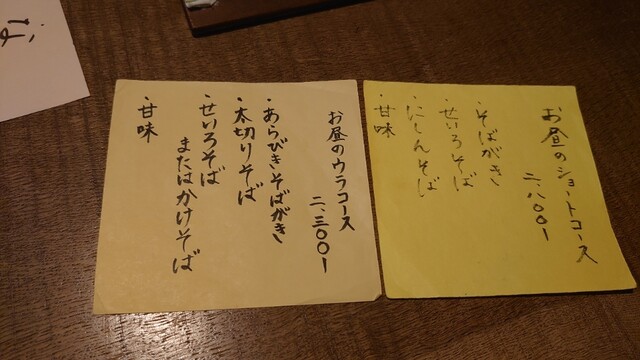 お昼のショートコース
二、八〇〇ー
・そばがき
・せいろそば
・にしんそば
・甘味
お昼のウラコース
二、三〇〇ー
・あらびきそばがき
・太切りそば
・せいろそば
またはかけそば
・甘味